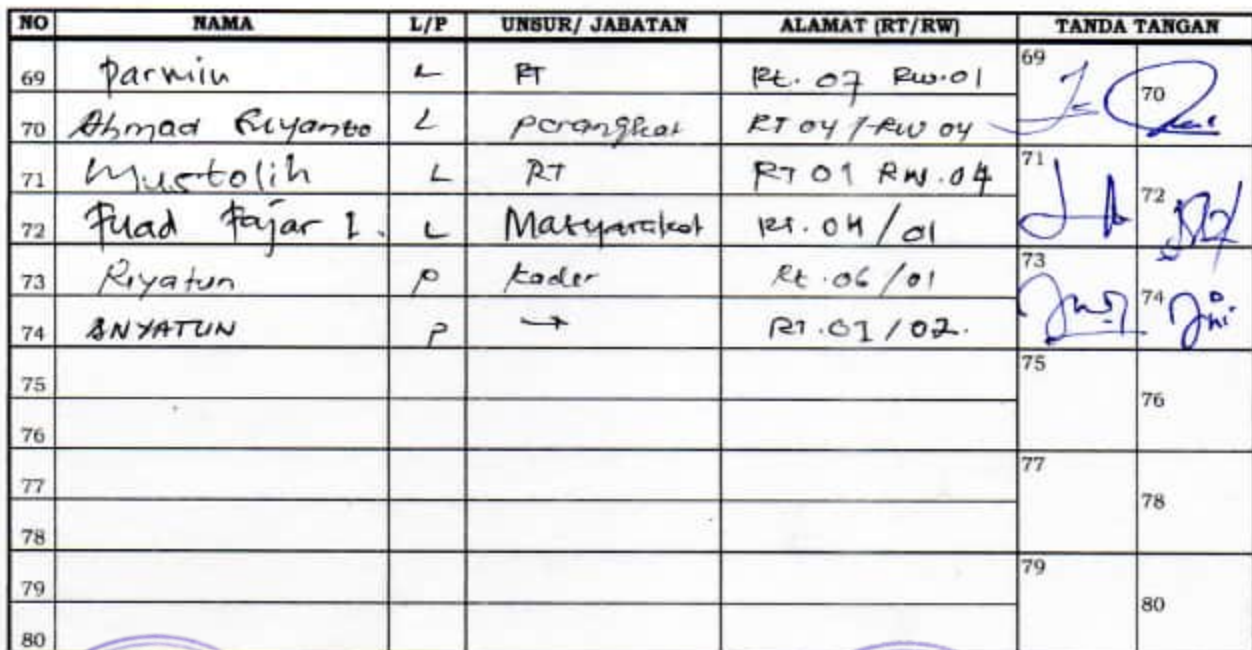 NO NAMA L/P UNSUR/ JABATAN ALAMAT (RT/RW) TANDA TANGAN
69 Parmin L RT Rt. 07 Rw.01 69
70 Ahmad Riyanto L perangkat RT 04 / RW 04 70
71 Mustolih L RT RT 01 RW.04 71
72 Fuad Fajar I. L Masyarakat Rt. 04/01 72
73 Riyatun P Kader Rt.06/01 73
74 P → RT.01/02. 74
75 75
76 76
77 77
78 78
79 79
80 80